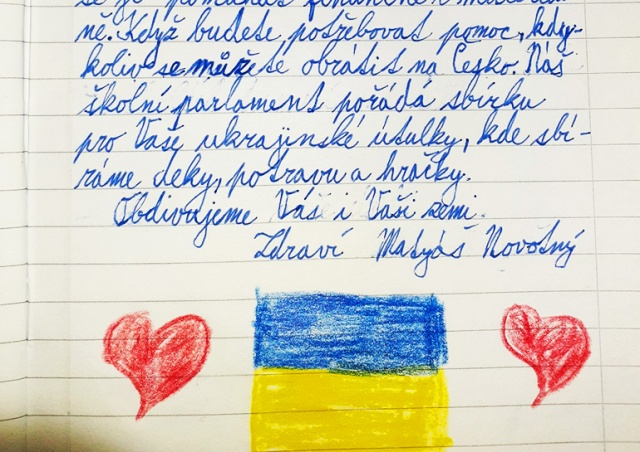 se je pomáhat finančně i materiál-
ně. Když budete potřebovat pomoc, kdy-
koliv se můžete obrátit na Česko. Náš
školní parlament pořádá sbírku
pro Vaše ukrajinské útulky, kde sbí-
ráme deky, potravu a hračky.
Obdivujeme Vás i Vaši zemi.
Zdraví Matyáš Novotný